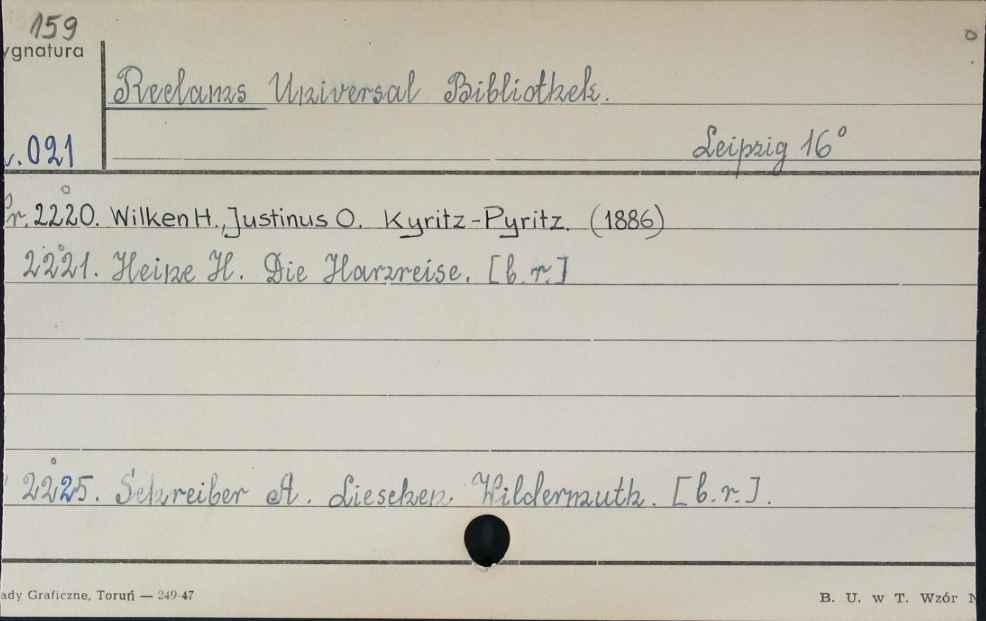 159
ygnatura
Reclams Universal Bibliothek.
v. 021
Leipzig 16°
Nr. 2220. Wilken H., Justinus O. Kyritz-Pyritz. (1886)
2221. Heine H. Die Harzreise. [b.r.]
2225. Schreiber A. Lieschen Wildermuth. [b.r.].
ady Graficzne, Toruń — 249-47
B. U. w T. Wzór N